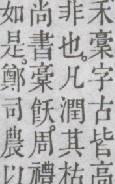 禾稾字古皆高
非也凡潤其枯
尚書稾飫周禮
如是鄭司農以